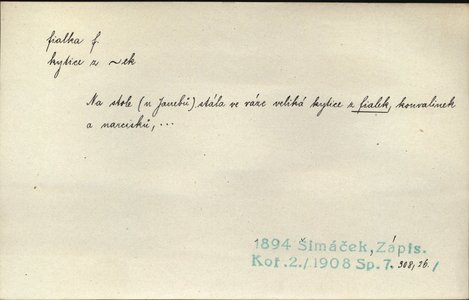 fialka f.
kytice z ~ek
Na stole (u Janebů) stála ve váze veliká kytice z fialek, konvalinek
a narcisků, ...
1894 Šimáček, Zápis.
Kot. 2./1908 Sp. 7. 308, 26./